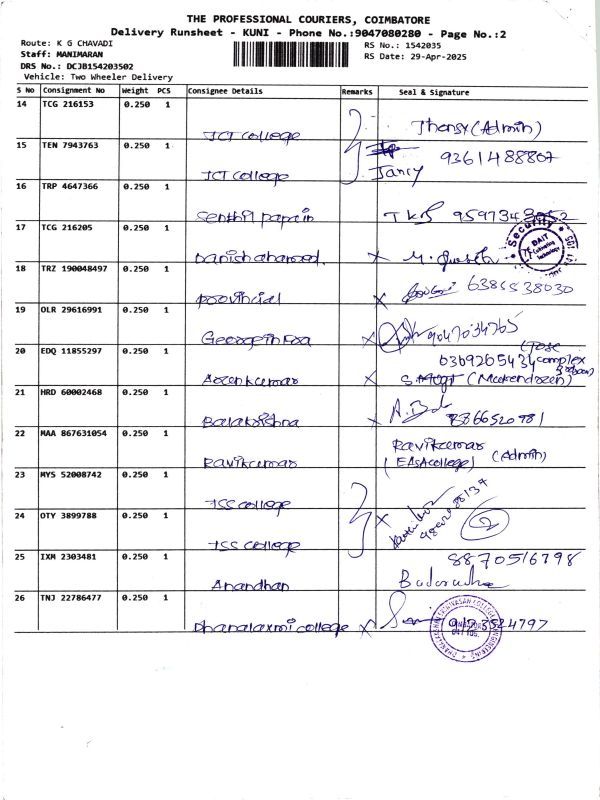 THE PROFESSIONAL COURIERS, COIMBATORE
Delivery Runsheet - KUNI - Phone No.:9047080280 - Page No.:2
Route: K G CHAVADI
RS No.: 1542035
Staff: MANIMARAN
RS Date: 29-Apr-2025
DRS No.: DCJB154203502
Vehicle: Two Wheeler Delivery
S No Consignment No Weight PCS Consignee Details Remarks Seal & Signature
14 TCG 216153 0.250 1
JCT College Thensy (Admin)
15 TEN 7943763 0.250 1 9361488807
JCT College Jancy
16 TRP 4647366 0.250 1
Senthil papain TKS
17 TCG 216205 0.250 1
Security
BAIT
Danish ahamed
18 TRZ 190048497 0.250 1
provincial 6386538030
19 OLR 29616991 0.250 1
9047034765
20 EDQ 11855297 0.250 1
0369205434 complex
21 HRD 60002468 0.250 1
Balakrishna 9866520781
22 MAA 867631054 0.250 1
Ravikumar Ravikumar
(EASA college) (Admin)
23 MYS 52008742 0.250 1
JSS college
24 OTY 3899788 0.250 1 2
JSS college
25 IXM 2303481 0.250 1 8870516798
Anandhan
26 TNJ 22786477 0.250 1
Dhanalaxmi college